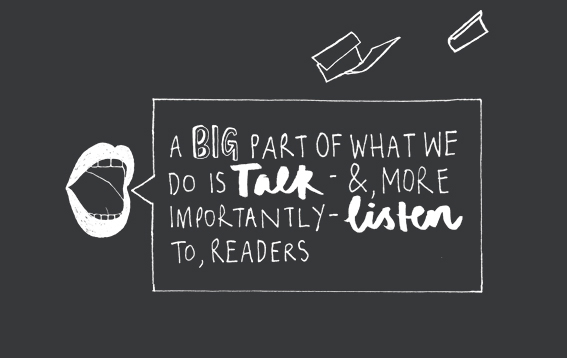 A BIG PART OF WHAT WE
DO IS Talk - &, MORE
IMPORTANTLY - listen
TO, READERS